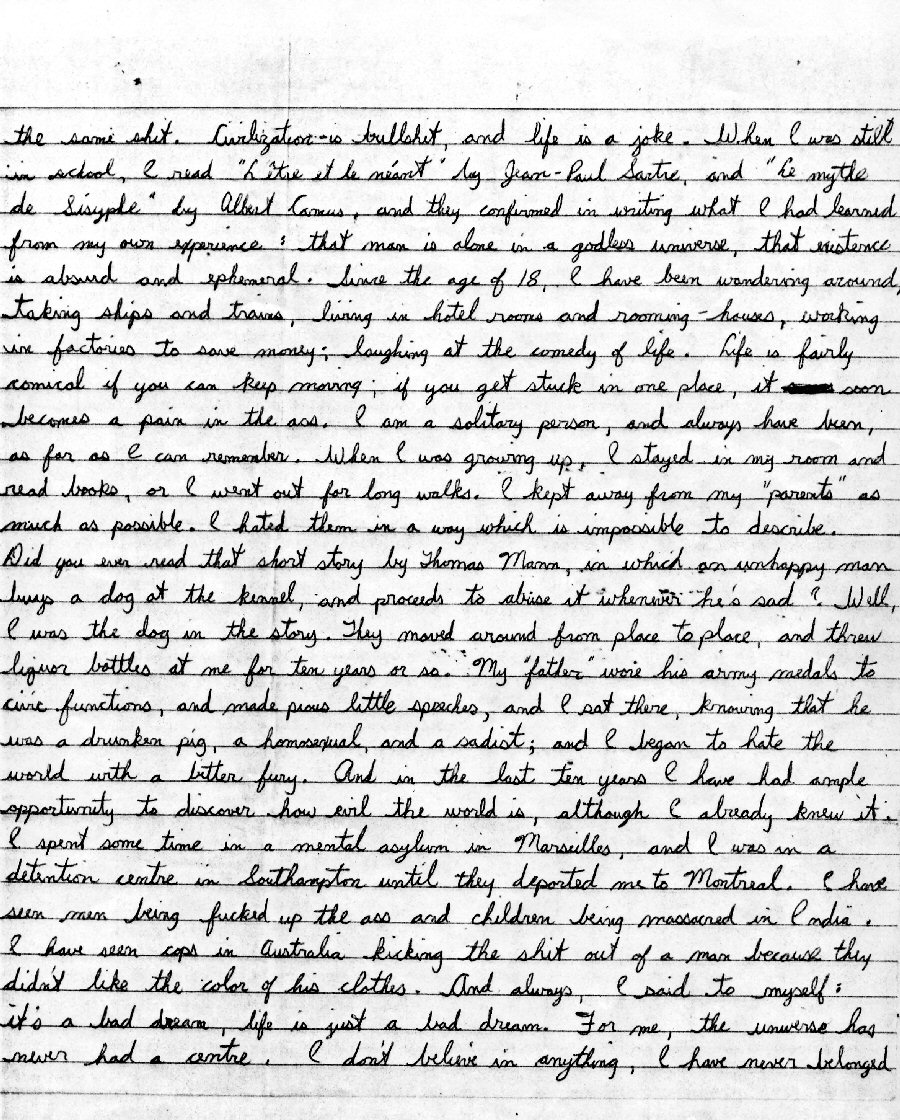 the same shit. Civilization is bullshit, and life is a joke. When I was still
in school, I read "L'être et le néant" by Jean-Paul Sartre, and "Le mythe
de Sisyphe" by Albert Camus, and they confirmed in writing what I had learned
from my own experience: that man is alone in a godless universe, that existence
is absurd and ephemeral. Since the age of 18, I have been wandering around,
taking ships and trains, living in hotel rooms and rooming-houses, working
in factories to save money; laughing at the comedy of life. Life is fairly
comical if you can keep moving; if you get stuck in one place, it soon
becomes a pain in the ass. I am a solitary person, and always have been,
as far as I can remember. When I was growing up, I stayed in my room and
read books, or I went out for long walks. I kept away from my "parents" as
much as possible. I hated them in a way which is impossible to describe.
Did you ever read that short story by Thomas Mann, in which an unhappy man
buys a dog at the kennel, and proceeds to abuse it whenever he's sad? Well,
I was the dog in the story. They moved around from place to place, and threw
liquor bottles at me for ten years or so. My "father" wore his army medals to
civic functions, and made pious little speeches, and I sat there, knowing that he
was a drunken pig, a homosexual, and a sadist; and I began to hate the
world with a bitter fury. And in the last ten years I have had ample
opportunity to discover how evil the world is, although I already knew it.
I spent some time in a mental asylum in Marseilles, and I was in a
detention centre in Southampton until they deported me to Montreal. I have
seen men being fucked up the ass and children being massacred in India.
I have seen cops in Australia kicking the shit out of a man because they
didn't like the color of his clothes. And always, I said to myself:
it's a bad dream, life is just a bad dream. For me, the universe has
never had a centre. I don't believe in anything, I have never belonged